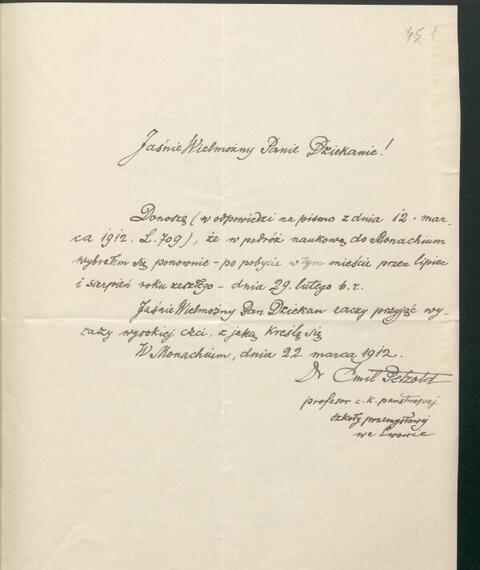 45 1
Jaśnie Wielmożny Panie Dziekanie!
Donoszę (w odpowiedzi na pismo z dnia 12. mar-
ca 1912. L. 709), że w podróż naukową do Monachium
wybrałem się ponownie - po pobycie w tym mieście przez lipiec
i sierpień roku zeszłego - dnia 29. lutego b. r.
Jaśnie Wielmożny Pan Dziekan raczy przyjąć wy-
razy wysokiej czci, z jaką kreślę się
W Monachium, dnia 22. marca 1912.
Dr Emil Petzold
profesor c. k. państwowej
szkoły przemysłowej
we Lwowie